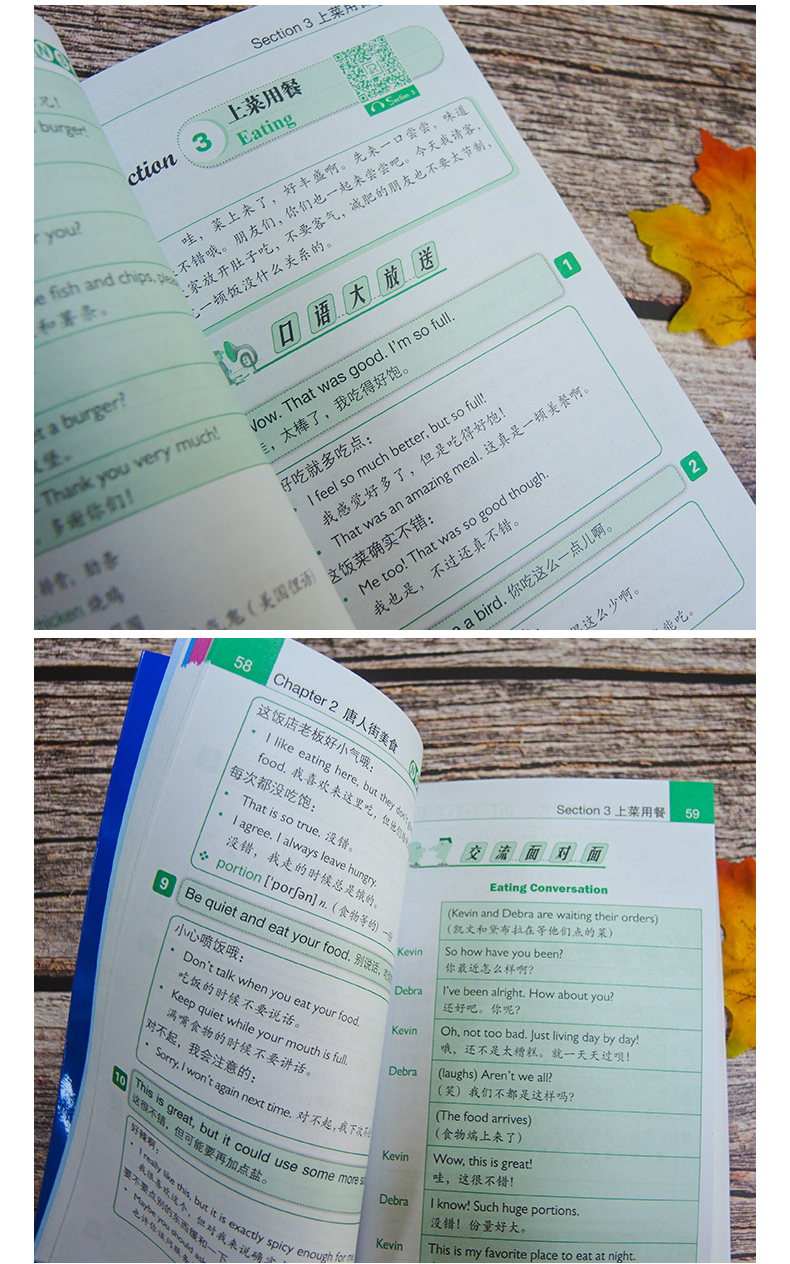 兄!
burger!
you?
e fish and chips, plea
和薯条。
t a burger?
堡。
Thank you very much!
多谢你们!
chicken 烧鸡
(美国俚语)
Section 3 上菜用餐
ction 3 上菜用餐
Eating
Section 3
哇,菜上来了,好丰盛啊。先来一口尝尝,味道
不错哦。朋友们,你们也一起来尝尝吧。今天我请客,
家放开肚子吃,不要客气,减肥的朋友也不要太节制,
一顿饭没什么关系的。
口语大放送
1
Wow. That was good. I'm so full.
哇,太棒了,我吃得好饱。
好吃就多吃点:
• I feel so much better, but so full!
我感觉好多了,但是吃得好饱!
• That was an amazing meal. 这真是一顿美餐啊。
这饭菜确实不错:
• Me too! That was so good though.
我也是,不过还真不错。
2
e a bird. 你吃这么一点儿啊。
这么少啊。
能吃。
58
Chapter 2 唐人街美食
这饭店老板好小气哦:
• I like eating here, but they don't
food. 我喜欢来这里吃,但他们
每次都没吃饱:
• That is so true. 没错。
• I agree. I always leave hungry.
没错,我走的时候总是饿的。
portion ['pɔrʃən] n. (食物等的)一
9
Be quiet and eat your food. 别说话,
小心喷饭哦:
• Don't talk when you eat your food.
吃饭的时候不要说话。
• Keep quiet while your mouth is full.
满嘴食物的时候不要讲话。
对不起,我会注意的:
• Sorry, I won't again next time. 对不起,我下次
10
This is great, but it could use some more sa
这很不错,但可能要再加点盐。
好辣啊:
• I really like this, but it is exactly spicy enough for me
我很喜欢这个,但对我来说确实
要不要点别的东西缓和一下
• Maybe you should ask
也许你该问服务
Section 3 上菜用餐 59
交流面对面
Eating Conversation
(Kevin and Debra are waiting their orders)
(凯文和黛布拉在等他们点的菜)
Kevin So how have you been?
你最近怎么样啊?
Debra I've been alright. How about you?
还好吧。你呢?
Kevin Oh, not too bad. Just living day by day!
哦,还不是太糟糕。就一天天过呗!
Debra (laughs) Aren't we all?
(笑)我们不都是这样吗?
(The food arrives)
(食物端上来了)
Kevin Wow, this is great!
哇,这很不错!
Debra I know! Such huge portions.
没错!份量好大。
Kevin This is my favorite place to eat at night.